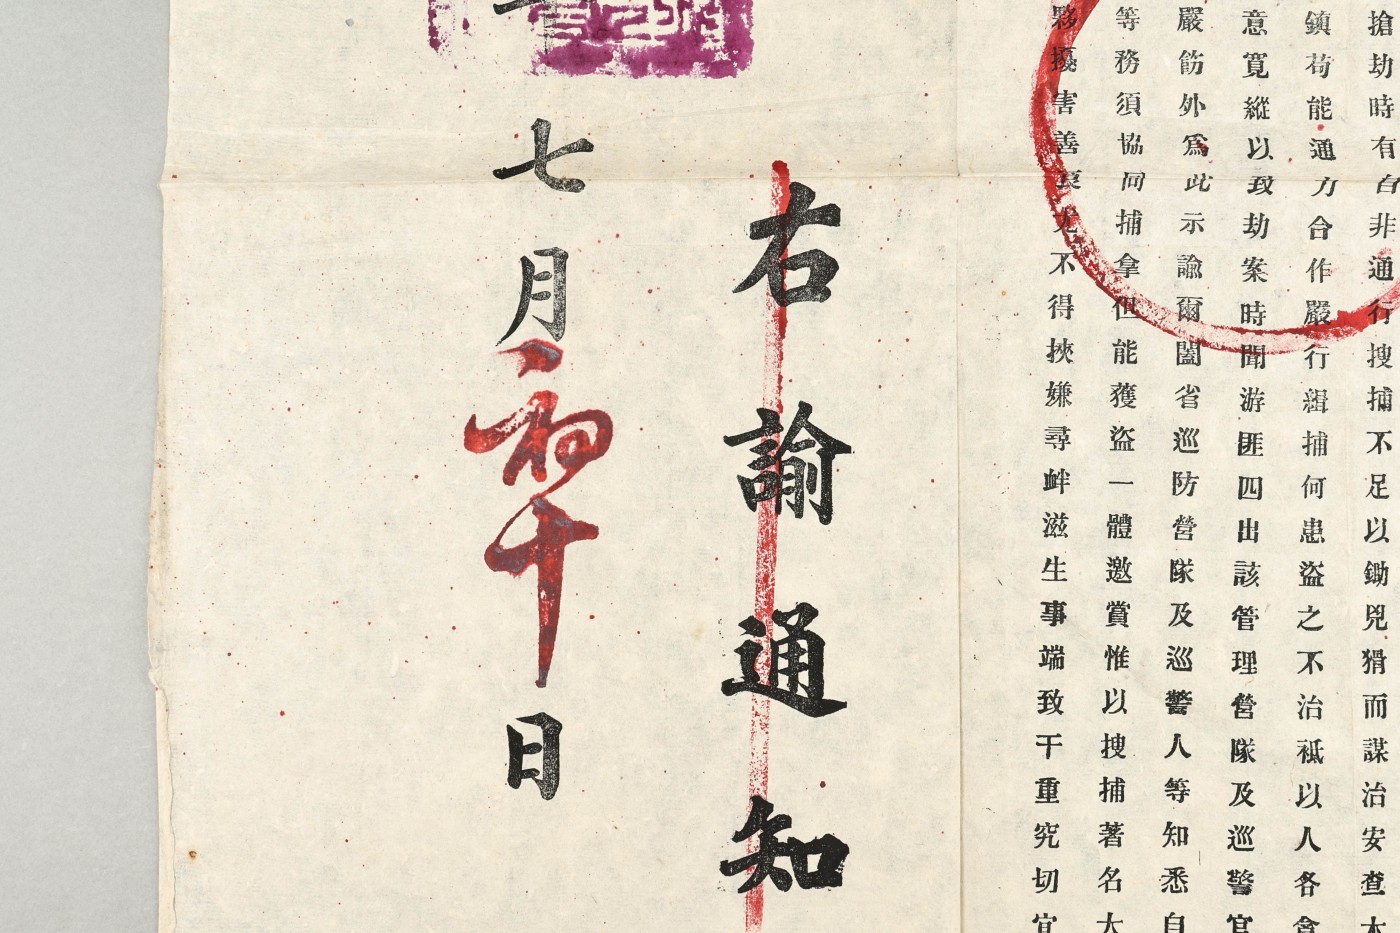 搶劫時有自非通行搜捕不足以鋤兇猾而謀治安查
鎮苟能通力合作嚴行緝捕何患盜之不治祗以人各貪
意寬縱以致劫案時聞游匪四出該管理營隊及巡警官
嚴飭外爲此示諭爾闔省巡防營隊及巡警人等知悉自
等務須協同捕拿但能獲盜一體邀賞惟以搜捕著名大
夥擾害善良尤不得挾嫌尋衅滋生事端致干重究切宜
右諭通知
七月初十日